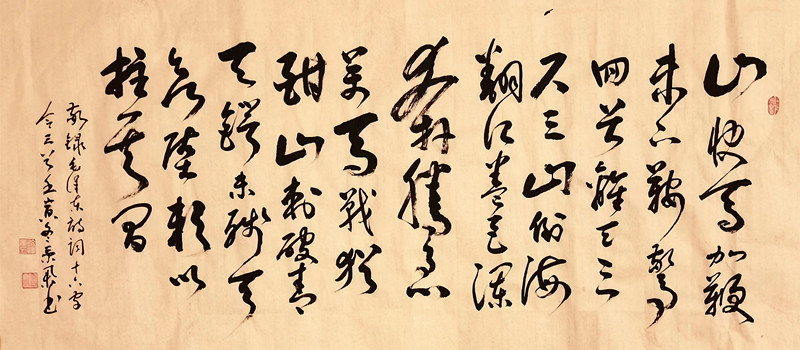 山快馬加鞭
未下鞍驚
回首離天三
尺三山倒海
翻江卷巨瀾
奔騰急
萬馬戰猶
酣山刺破青
天鍔未殘天
欲墮賴以
拄其間
敬録毛澤東詩詞十六字
令三首壬寅冬書